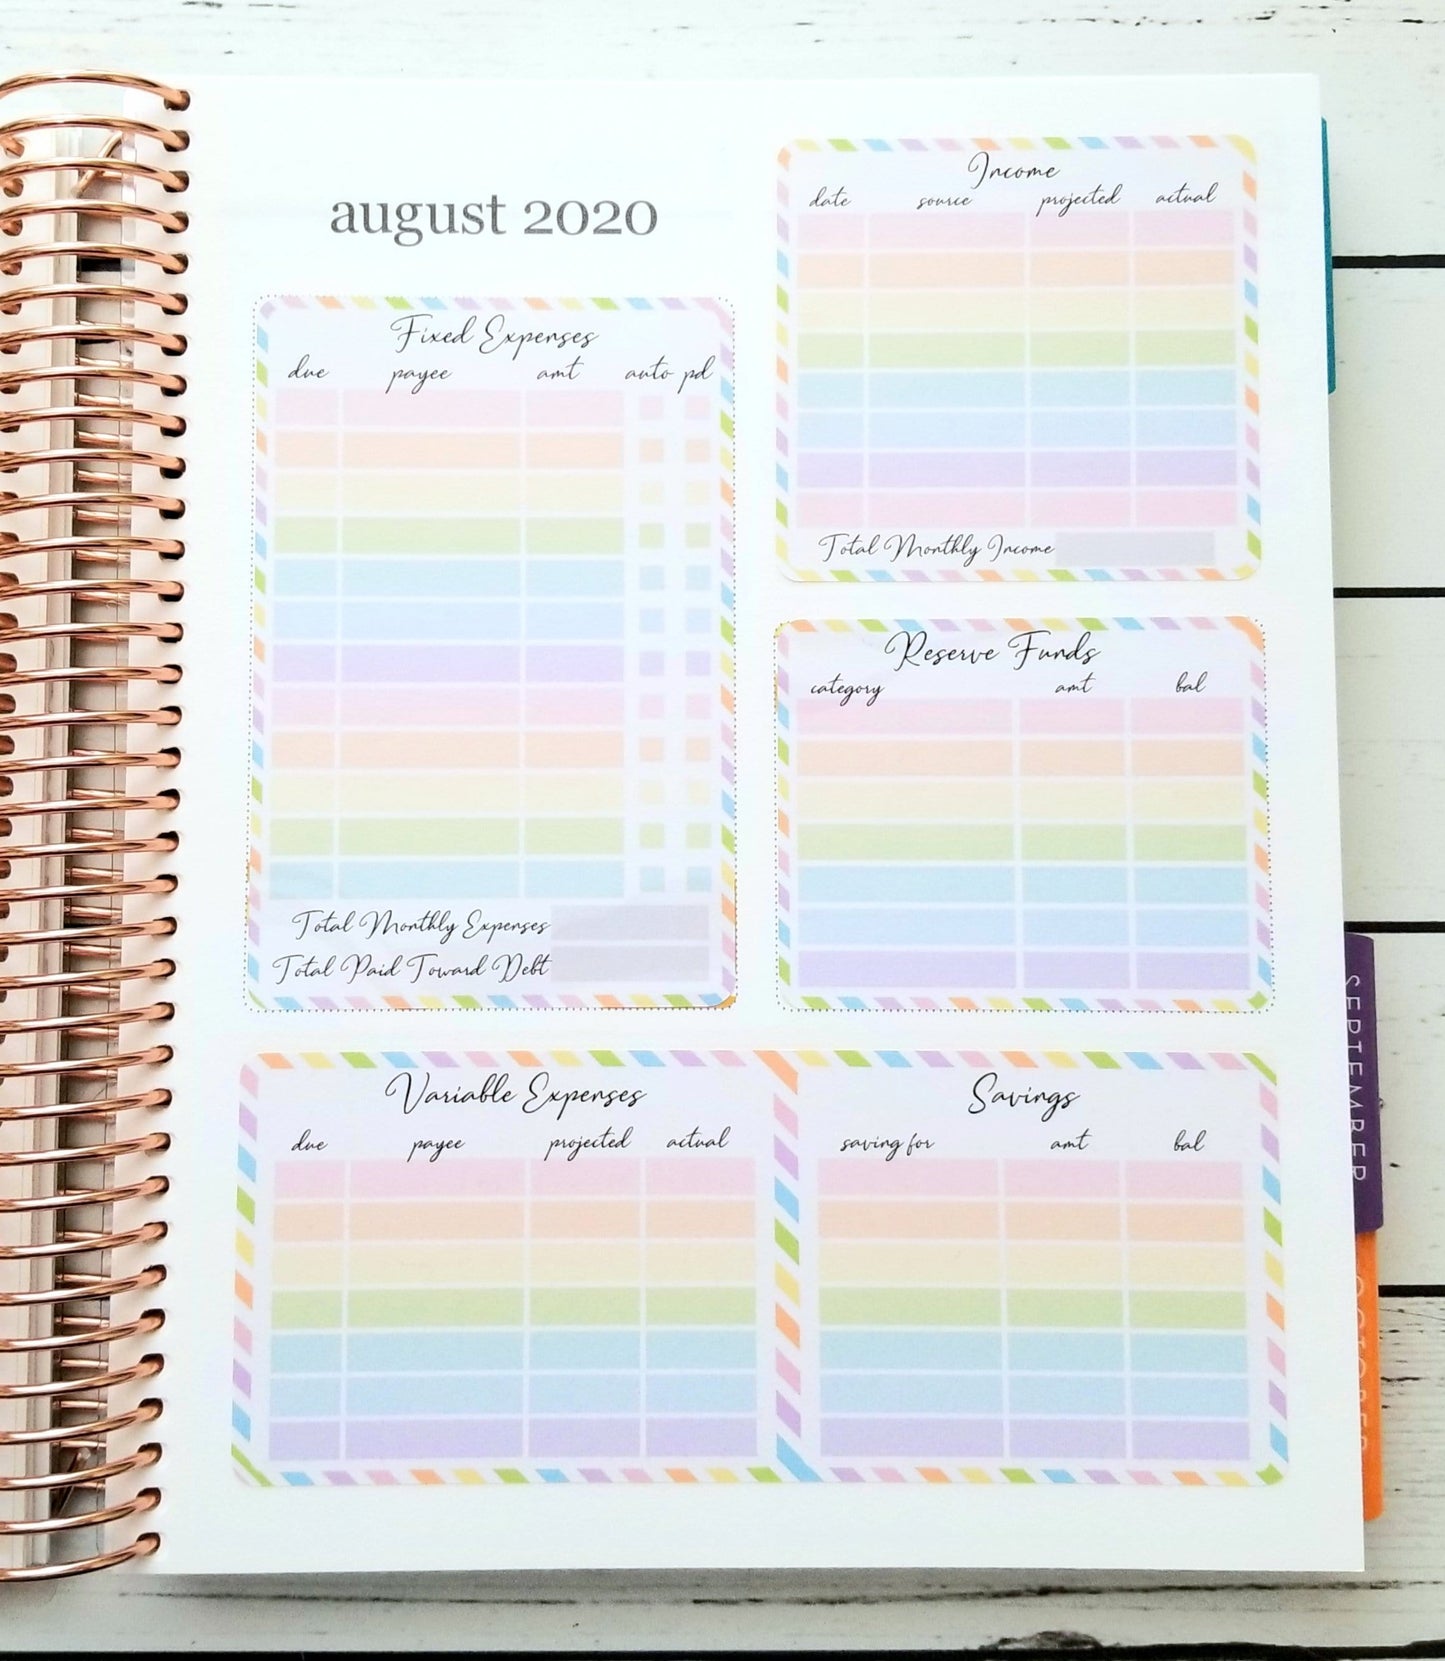 august 2020
Fixed Expenses
due payee amt auto pd
Total Monthly Expenses
Total Paid Toward Debt
Income
date source projected actual
Total Monthly Income
Reserve Funds
category amt bal
Variable Expenses
due payee projected actual
Savings
saving for amt bal
SEPTEMBER
OCTOBER